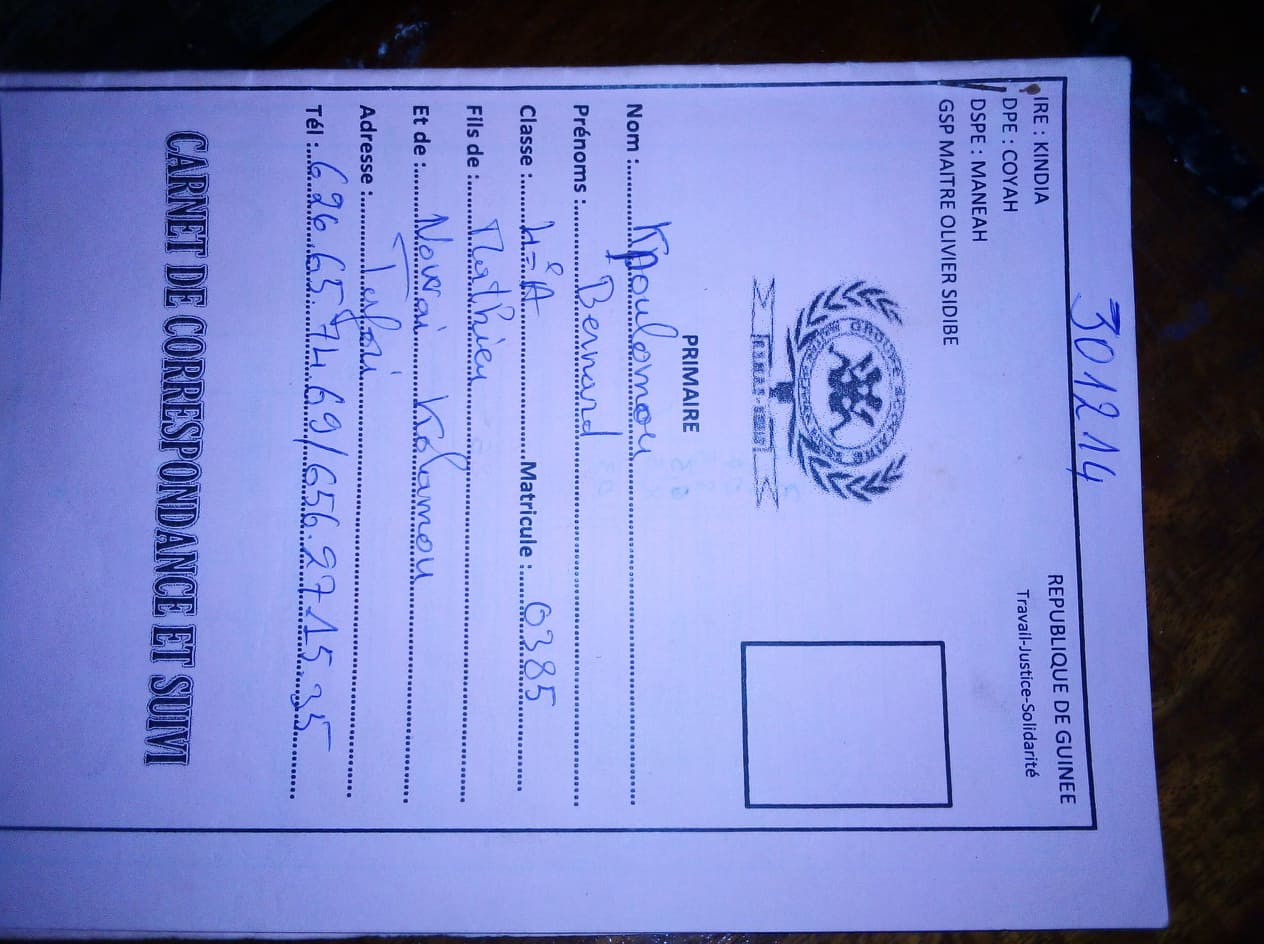 301214
IRE : KINDIA
REPUBLIQUE DE GUINEE
DPE : COYAH
Travail-Justice-Solidarité
DSPE : MANEAH
GSP MAITRE OLIVIER SIDIBE
PRIMAIRE
Nom : Kpoulomou
Prénoms : Bernard
Classe : 4è A Matricule : 0385
Fils de : Mathieu
Et de : Kolamou
Adresse :
Tél : 626.65.74.69/656.27.15.35
CARNET DE CORRESPONDANCE ET SUIVI